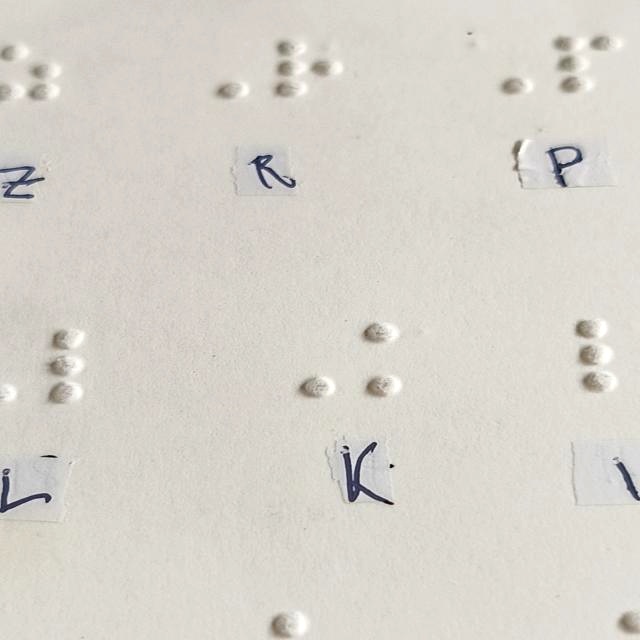 Z R P
L K